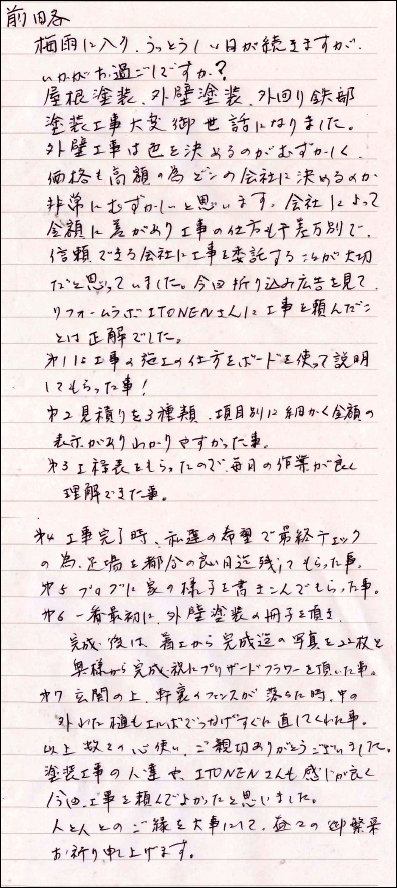 前田各
梅雨に入り、うっとうしい日が続きますが、
いかがお過ごしですか?
屋根塗装、外壁塗装、外回り鉄部
塗装工事大変御世話になりました。
外壁工事は色を決めるのがむずかしく
価格も高額の為どこの会社に決めるのか
非常にむずかしいと思います。会社によって
金額に差があり工事の仕方も千差万別で、
信頼できる会社に工事を委託することが大切
だと思っていました。今回折り込み広告を見て、
リフォームラボITONENさんに工事を頼んだこ
とは正解でした。
第1に工事の施工の仕方をボードを使って説明
してもらった事!
第2見積りを3種類、項目別に細かく金額の
表示がありわかりやすかった事。
第3工程表をもらったので毎日の作業が良く
理解できた事。
第4 工事完了時、私達の希望で最終チェック
の為、足場を都合の良い日迄残してもらった事。
第5 ブログに家の様子を書きこんでもらった事。
第6 一番最初に、外壁塗装の冊子を頂き、
完成後は、着工から完成迄の写真を22枚と
奥様から完成祝にプリザードフラワーを頂いた事。
第7 玄関の上、軒裏のフェンスが落ちた時、中の
外れた樋もエルボでつなげすぐに直してくれた事。
以上数々の心使い、ご親切ありがとうございました。
塗装工事の人達や、ITONENさんも感じが良く
今回工事を頼んでよかったと思いました。
人と人とのご縁を大事にして、益々の御繁栄
お祈り申し上げます。